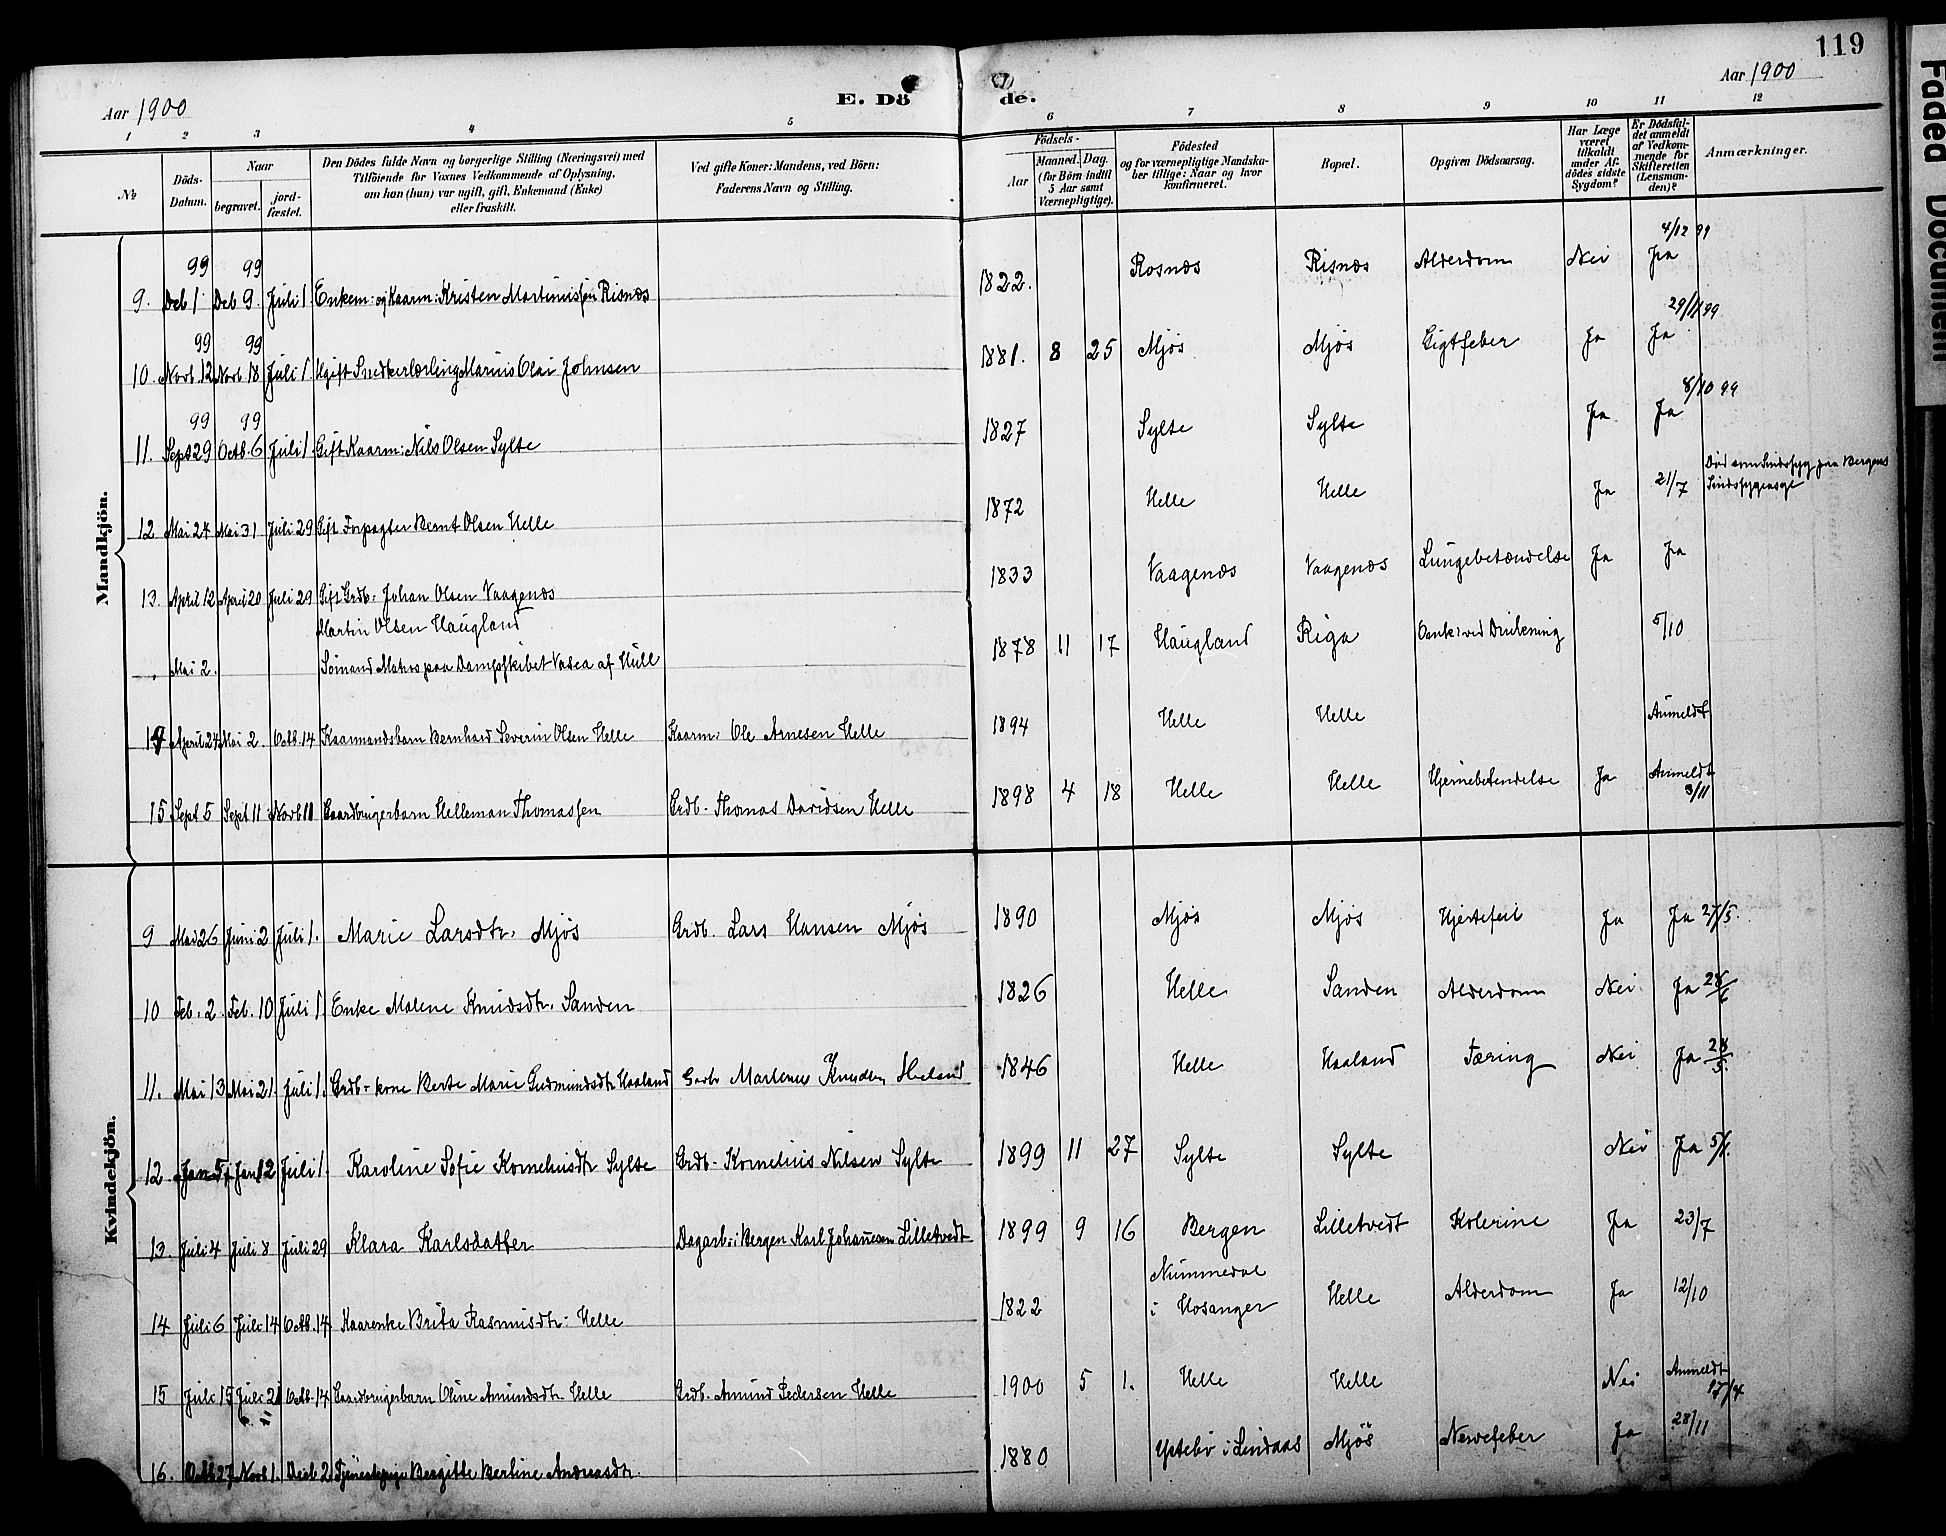 119
Aar 1900
E. Dö de.
Aar 1900
1 2 3 4 5 6 7 8 9 10 11 12
№
Döds-Datum.
Naar
begravet.
jord-fæstet.
Den Dödes fulde Navn og borgerlige Stilling (Næringsvei) med
Tilföiende for Voxnes Vedkommende af Oplysning,
om han (hun) var ugift, gift, Enkemand (Enke)
eller fraskilt.
Ved gifte Koner: Mandens, ved Börn:
Faderens Navn og Stilling.
Födsels-
Aar
Maaned. Dag.
(for Börn indtil
5 Aar samt
Værnepligtige).
Födested
og for værnepligtige Mandska-
ber tillige: Naar og hvor
konfirmeret.
Bopæl.
Opgiven Dödsaarsag.
Har Læge
været
tilkaldt
under Af-
dödes sidste
Sygdom?
Er Dödsfal-
det anmeldt
af Vedkom-
mende for
Skifteretten
(Lensman-
den)?
Anmærkninger.
Mandkjön.
99 99 4/12 99
9. Deb 1 Deb 9. Juli 1. Enkem: og Kaarm: Kristen Martinussøn Risnæs 1822. Rosnæs Risnæs Alderdom Nei Ja
99 99 29/11 99
10. Novb. 12 Novb 18 Juli 1. Ugift Snedkerlærling Marius Olai Johnsen 1881. 8 25 Mjøs Mjøs Gigtfeber Ja Ja
99 99 8/10 99
11. Sept 29 Octb. 6 Juli 1. Gift Kaarm: Nils Olsen Sylte 1827 Sylte Sylte Ja Ja
12 Mai 24 Mai 31 Juli 29 Gift Forpagter Bernt Olsen Helle 1872 Helle Helle Ja 21/7 Død som Sindssyg paa Bergens
Sindssygeasyl
13. April 12 April 20 Juli 29 Gift Grdb. Johan Olsen Vaagenæs 1833 Vaagenæs Vaagenæs Lungebetændelse Ja Ja
Martin Olsen Haugland
Mai 2. Sømand Matros paa Dampskibet Vasca af Hull 1878 11 17 Haugland Riga ved Drukning 5/10
14 April 24 Mai 2. Octb. 14 Kaarmandsbarn Bernhard Severin Olsen Helle Kaarm: Ole Arnesen Helle 1894 Helle Helle Anmeldt
15 Sept 5 Sept 11 Novb 11 Gaardbrugerbarn Helleman Thomassen Grdb. Thomas Davidsen Helle 1898 4 18 Helle Helle Hjernebetendelse Ja Anmeldt
3/11
Kvindekjön.
9 Mai 26 Juni 2 Juli 1. Marie Larsdtr. Mjøs Grdb. Lars Hansen Mjøs 1890 Mjøs Mjøs Hjertefeil Ja Ja 27/5.
10 Feb. 2. Feb. 10 Juli 1 Enke Malene Knudsdtr. Sanden 1826 Helle Sanden Alderdom Nei Ja 28/6
11. Mai 13 Mai 21. Juli 1. Grdb.- kone Berte Marie Gudmundsdtr Haaland Gardb Martenus Knudsen Haaland 1846 Helle Haaland Tæring Nei Ja 28/5.
12. Jan 5. Jan 12 Juli 1. Karoline Sofie Korneliusdtr Sylte Grdb. Kornelius Nilsen Sylte 1899 11 27 Sylte Sylte Nei Ja 5/1.
13. Juli 4 Juli 8 Juli 29 Klara Karlsdatter Dagarb. i Bergen Karl Johanesen Lilletvedt 1899 9 16 Bergen Lilletvedt Kolerine Ja 23/7
14 Juli 6 Juli 14 Octb. 14 Kaarenke Brita Rasmusdtr. Helle 1822 Nummedal
i Hosanger Helle Alderdom Ja 12/10
15 Juli 15 Juli 21 Octb. 14 Gaardbrugerbarn Oline Amundsdtr Helle Grdb. Amund Pedersen Helle 1900 5 1. Helle Helle Nei Anmeldt
17/4
16. Octb 27 Novb 1. Decb 2 Tjenestepige Bergitte Berline Andreasdtr. 1880 Ystebø i Lindaas Mjøs Nervefeber Ja 28/11
Faded Document